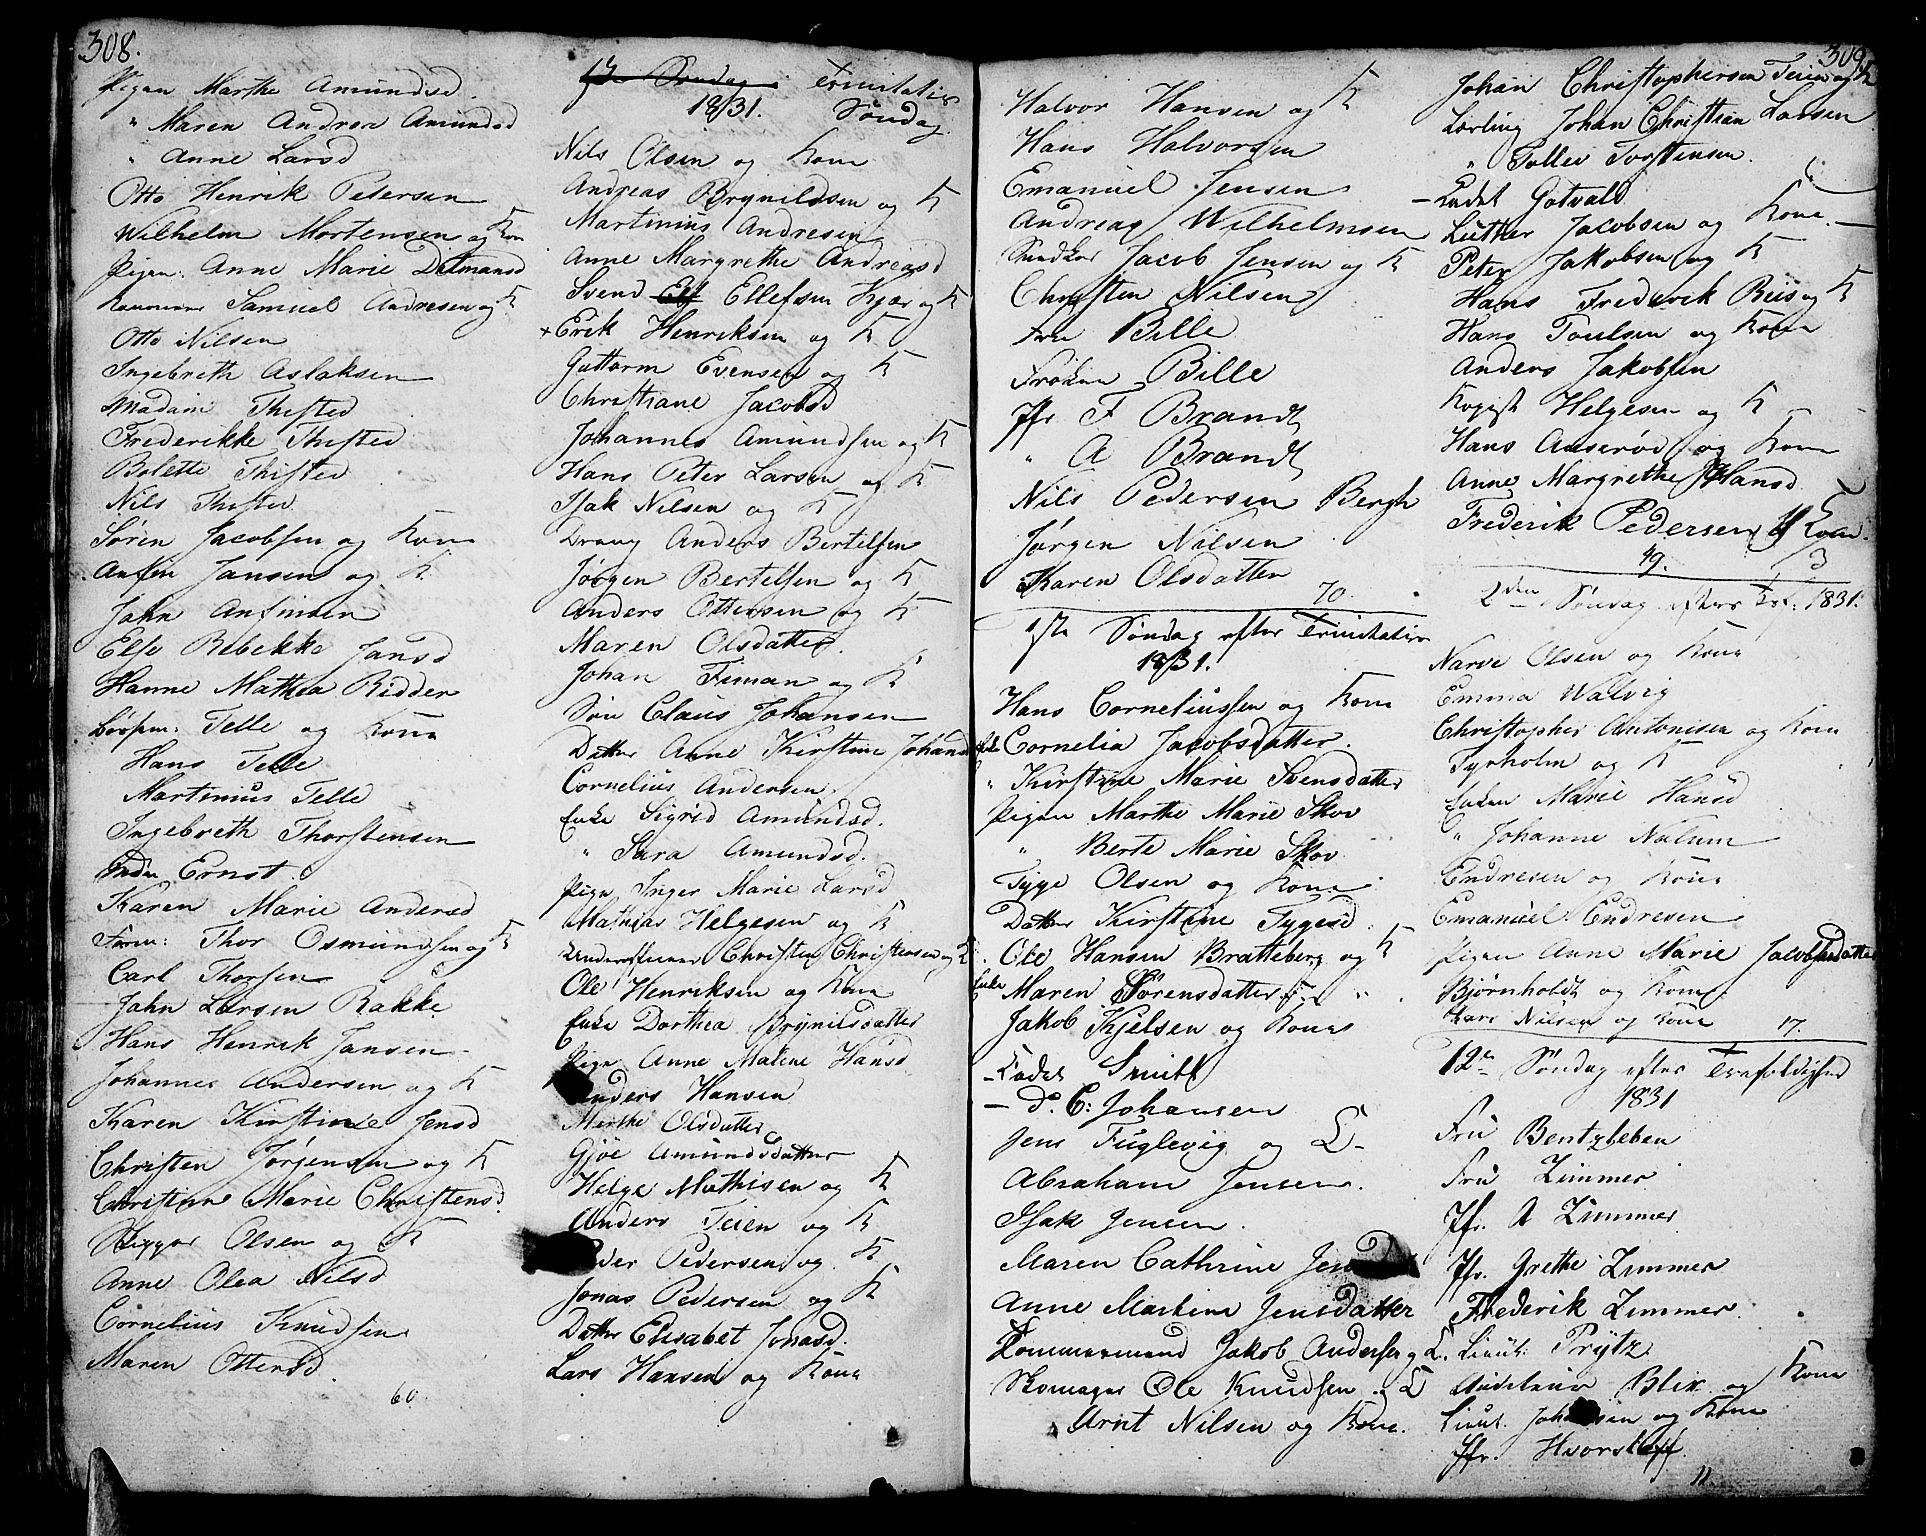 308.
Pigen Marthe Amundsd.
" Maren Andrea Amundsd
" Anne Larsd
Otto Henrik Petersen
Wilhelm Mortensen og Kon
Pigen: Anne Marie Detmansd
Samuel Andresen og K
Otto Nilsen
Ingebreth Aslaksen
Madam Thisted
Frederikke Thisted
Bolette Thisted
Nils Thisted
Søren Jacobsen og Kone
Anfin Jansen og K
Jahn Anfinsen
Else Rebekke Jansd
Hanne Mathea Ridder
Telle og Kone
Hans Telle
Martinius Telle
Ingebreth Thorstensen
Ernst.
Karen Marie Andersd
Thor Osmundsen og K
Carl Thorsen
Jahn Larsen Rakke
Hans Henrik Jansen
Johannes Andersen og K
Karen Kirstine Jensd
Christen Jørgensen og K
Christiane Marie Christensd.
Olsen og K
Anne Olea Nilsd
Cornelius Knudsen
Maren Ottersd.
60.
1ste Søndag Trinitatis
1831. Søndag.
Nils Olsen og Kone
Andreas Brynildsen og K
Martinius Andresen
Anne Margrethe Andreasd
Svend Elf Ellefsen Kjær og K
+ Erik Henriksen og K
Guttorm Evensen og K
Christiane Jacobsd
Johannes Amundsen og K
Hans Peter Larsen og K
Isak Nilsen og K
Dreng Anders Bertelsen
Jørgen Bertelsen og K
Anders Ottersen og K
Maren Olsdatter.
Johan Timan og K
Søn Claus Johansen
Datter Anne Kirstine Johansd
Cornelius Andersen
Enke Sigrid Amundsd.
" Sara Amundsd.
Pige Inger Marie Larsd
Mathias Helgesen og K
Christen Christensen og K
Ole Henriksen og Kone
Enke Dorthea Brynilsdatter
Pige Anne Malene Hansd
Anders Hansen
Marthe Olsdatter
Gjøe Amundsdatter
Helge Mathisen og K
Anders Teien og K
Peder Pedersen og K
Jonas Pedersen og K
Datter Elisabet Jonasd.
Lars Hansen og Kone
Halvor Hansen og K
Hans Halvorsen
Emanuel Jensen
Andreas Wilhelmsen
Jacob Jensen og K
Christen Nilsen
Fru Bille
Frøken Bille
Jfr F Brandt
" A Brandt
Nils Pedersen Bergh
Jørgen Nilsen
Karen Olsdatter
70.
1ste Søndag efter Trinitatis
1831.
Hans Corneliussen og Kone
Enke Cornelia Jacobsdatter.
" Kirstine Marie Svensdatter
Pigen Marthe Marie Skov
" Berte Marie Skov
Tyge Olsen og Kone
Datter Kirstine Tygesd.
Ole Hansen Bratteberg og K
Enke Maren Sørensdatter
Jakob Kjelsen og Kone
– Cadet Smitt
– do. C: Johansen
Jens Fuglevig og K
Abraham Jensen.
Isak Jensen.
Maren Cathrine Jensd
Anne Martine Jensdatter
Tommermand Jakob Andersen og K.
Skomager Ole Knudsen og K
Arnt Nilsen og Kone.
309.
Johan Christophersen Teien og K
Lærling Johan Christian Larsen
" Tollev Torstensen.
– Cadet Gotvald
Luther Jacobsen og Kone
Peter Jakobsen og K
Hans Frederik Beis og K
Hans Poulsen og Kone
Anders Jakobsen
Kopist Helgesen og K
Hans Anserød og Kone
Anne Margrethe Hansd
Frederik Pedersen og Kone.
49.
2den Søndag efter Tref: 1831.
Narve Olsen og Kone
Emma Walvig
Christopher Antonisen og Kone
Tyrholm og K
Enken Marie Hansd
" Johanne Nalum
Endresen og Kone
Emanuel Endresen
Pigen Anne Marie Jacobsdatter
Bjørnholdt og Kone
Lars Nilsen og Kone 17.
12te Søndag efter Trefoldighed
1831
Fru Bentzleben
Fru Zimmer
Jfr. A Zimmer
Jfr. Grethe Zimmer
Frederik Zimmer
Lieut: Prytz
Blix og Kone
Lieut. Johansen og Kone
Jfr. Hvorslef
11